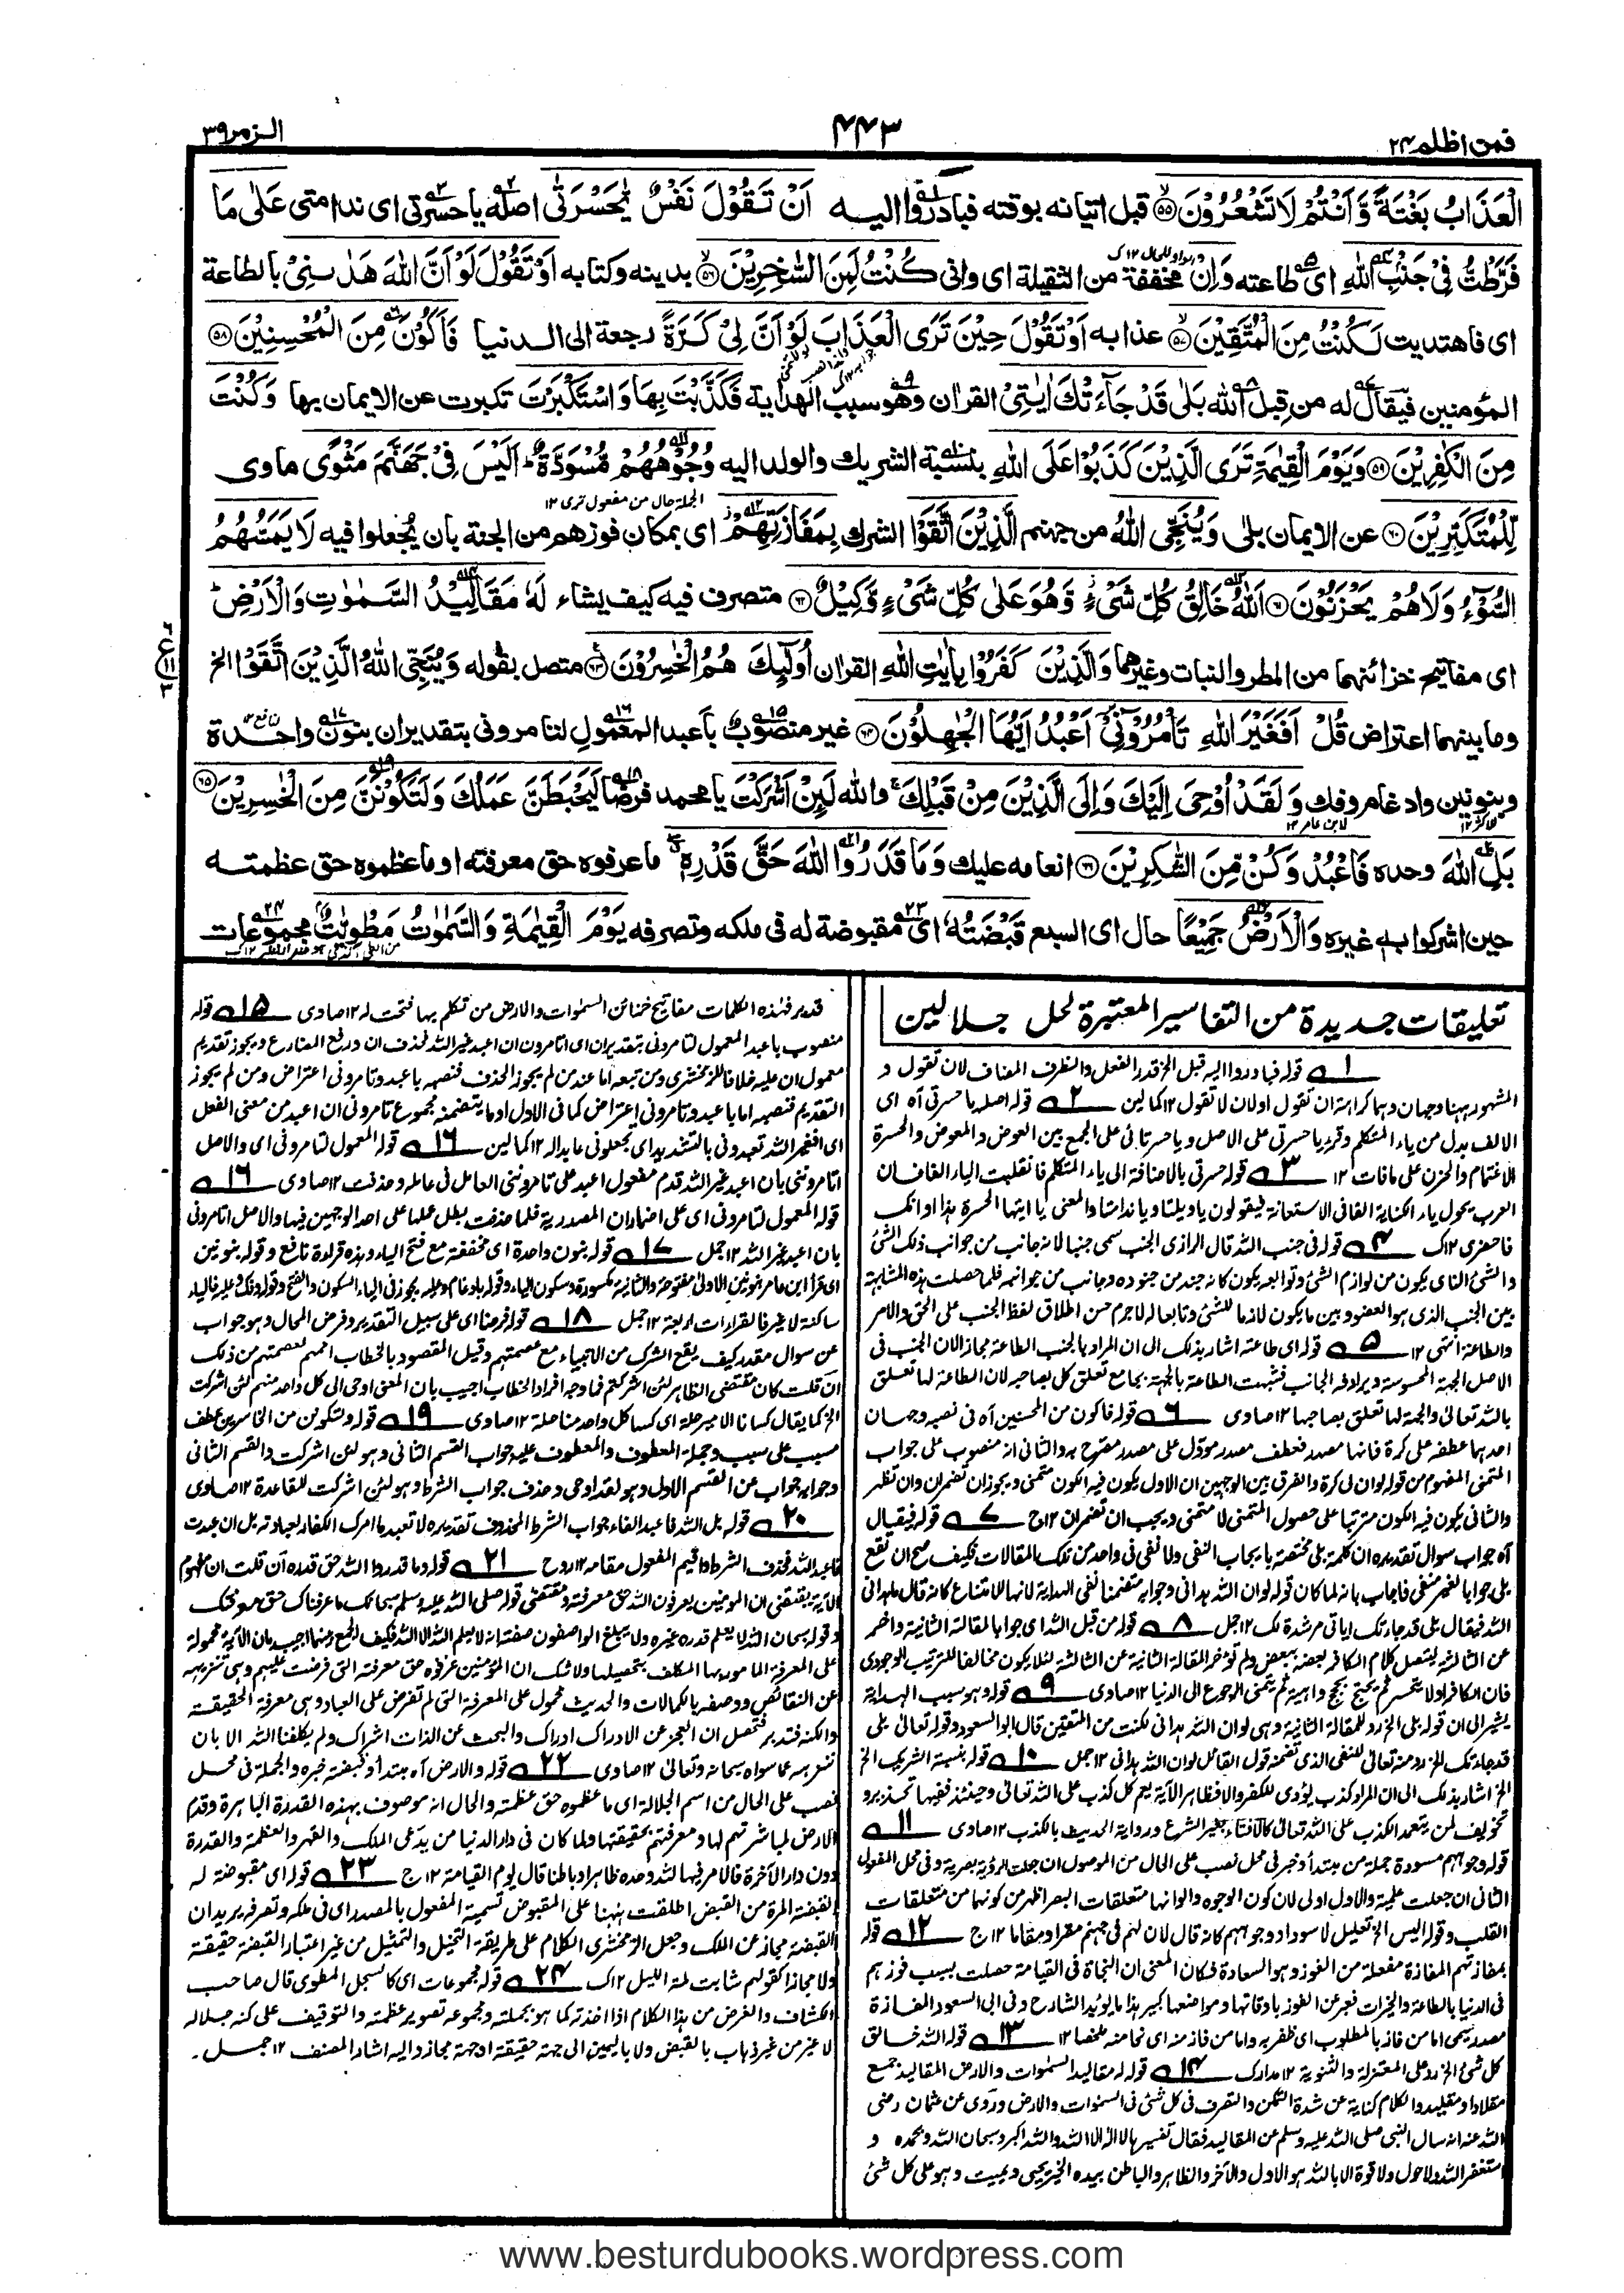 الزمر٣٩
٤٤٣
فمن اظلم٢٤
الْعَذَابُ بَغْتَةً وَّاَنْتُمْ لَا تَشْعُرُوْنَ ۝٥٥ قبل اتيانه بوقته فبادروا اليه اَنْ تَقُوْلَ نَفْسٌ يّٰحَسْرَتٰى اصله ياحسرتى اى ندامتى عَلٰى مَا
فَرَّطْتُّ فِيْ جَنْبِ اللّٰهِ اى طاعته وَاِنْ مخففة من الثقيلة اى وانى كُنْتُ لَمِنَ السّٰخِرِيْنَ ۝٥٦ بدينه وكتابه اَوْ تَقُوْلَ لَوْ اَنَّ اللّٰهَ هَدٰىنِيْ بالطاعة
اى فاهتديت لَكُنْتُ مِنَ الْمُتَّقِيْنَ ۝٥٧ عذابه اَوْ تَقُوْلَ حِيْنَ تَرَى الْعَذَابَ لَوْ اَنَّ لِيْ كَرَّةً رجعة الى الدنيا فَاَكُوْنَ مِنَ الْمُحْسِنِيْنَ ۝٥٨
المؤمنين فيقال له من قبل الله بَلٰى قَدْ جَآءَتْكَ اٰيٰتِيْ القران وهو سبب الهداية فَكَذَّبْتَ بِهَا وَاسْتَكْبَرْتَ تكبرت عن الايمان بها وَكُنْتَ
مِنَ الْكٰفِرِيْنَ ۝٥٩ وَيَوْمَ الْقِيٰمَةِ تَرَى الَّذِيْنَ كَذَبُوْا عَلَى اللّٰهِ بنسبة الشريك والولد اليه وُجُوْهُهُمْ مُّسْوَدَّةٌ ؕ اَلَيْسَ فِيْ جَهَنَّمَ مَثْوًى ماوى
الجملة حال من مفعول ترى ١٢
لِّلْمُتَكَبِّرِيْنَ ۝٦٠ عن الايمان بلى وَيُنَجِّى اللّٰهُ من جهنم الَّذِيْنَ اتَّقَوْا الشرك بِمَفَازَتِهِمْ اى بمكان فوزهم من الجنة بان يُجعلوا فيه لَا يَمَسُّهُمُ
السُّوْٓءُ وَلَا هُمْ يَحْزَنُوْنَ ۝٦١ اَللّٰهُ خَالِقُ كُلِّ شَيْءٍ وَّهُوَ عَلٰى كُلِّ شَيْءٍ وَّكِيْلٌ ۝٦٢ متصرف فيه كيف يشاء لَهٗ مَقَالِيْدُ السَّمٰوٰتِ وَالْاَرْضِ ؕ
اى مفاتيح خزائنهما من المطر والنبات وغيرهما وَالَّذِيْنَ كَفَرُوْا بِاٰيٰتِ اللّٰهِ القران اُولٰٓئِكَ هُمُ الْخٰسِرُوْنَ ۝٦٣ متصل بقوله وَيُنَجِّى اللّٰهُ الَّذِيْنَ اتَّقَوْا الخ
وما بينهما اعتراض قُلْ اَفَغَيْرَ اللّٰهِ تَاْمُرُوْٓنِّيْ اَعْبُدُ اَيُّهَا الْجٰهِلُوْنَ ۝٦٤ غير منصوب باَعبد المعمول لتامرونى بتقديران بنون واحدة
وبنونين وادغام وفك وَلَقَدْ اُوْحِيَ اِلَيْكَ وَاِلَى الَّذِيْنَ مِنْ قَبْلِكَ ۚ والله لَئِنْ اَشْرَكْتَ يا محمد فرضا لَيَحْبَطَنَّ عَمَلُكَ وَلَتَكُوْنَنَّ مِنَ الْخٰسِرِيْنَ ۝٦٥
بَلِ اللّٰهَ وحده فَاعْبُدْ وَكُنْ مِّنَ الشّٰكِرِيْنَ ۝٦٦ انعامه عليك وَمَا قَدَرُوا اللّٰهَ حَقَّ قَدْرِهٖ ماعرفوه حق معرفته او ماعظموه حق عظمته
حين اشركوا به غيره وَالْاَرْضُ جَمِيْعًا حال اى السبع قَبْضَتُهٗ اى مقبوضة له فى ملكه وتصرفه يَوْمَ الْقِيٰمَةِ وَالسَّمٰوٰتُ مَطْوِيّٰتٌ مجموعات
تعليقات جديدة من التفاسير المعتبرة لحل جلالين
١ قوله فبادروا اليه قبل الخ قدر الفعل والظرف المضاف لان تقول و
المشهور ههنا وجهان وهما كراهة ان تقول او لان لا تقول ١٢ كمالين ٢ قوله اصله يا حسرتى آه اى
الالف بدل من ياء المتكلم وقرئ يا حسرتى على الاصل ويا حسرتاى على الجمع بين العوض والمعوض والحسرة
الاغتمام والحزن على ما فات ١٢ ٣ قوله حسرتى بالاضافة الى ياء المتكلم فانقلبت الياء الفا فان
العرب يحول ياء الكناية الفا فى الاستغاثة فيقولون يا ويلتا ويا ندامتا والمعنى يا ايتها الحسرة هذا اوانك
فاحضرى ١٢ك ٤ قوله فى جنب الله قال الرازى الجنب سمى جنبا لانه جانب من جوانب ذلك الشئ
والشئ الذى يكون من لوازم الشئ وتوابعه يكون كانه جند من جنوده وجانب من جوانبه فلما حصلت هذه المشابهة
بين الجنب الذى هو العضو وبين ما يكون لازما للشئ وتابعا له لا جرم حسن اطلاق لفظ الجنب على الحق والامر
والطاعة انتهى ١٢ ٥ قوله اى طاعته اشار بذلك الى ان المراد بالجنب الطاعة مجازا لان الجنب فى
الاصل الجهة المحسوسة ويرادفه الجانب فشبهت الطاعة بالجهة بجامع تعلق كل بصاحبه لان الطاعة لها تعلق
بالله تعالى والجهة لها تعلق بصاحبها ١٢ صاوى ٦ قوله فاكون من المحسنين آه فى نصبه وجهان
احدهما عطفه على كرة فانها مصدر فعطف مصدر مؤول على مصدر مصرح به والثانى انه منصوب على جواب
المتمنى المفهوم من قوله لو ان لى كرة والفرق بين الوجهين ان الاول يكون فيه الكون متمنى ويجوز ان تضمر ان وان تظهر
والثانى يكون فيه الكون مترتبا على حصول المتمنى لا متمنى ويجب ان تضمر ان ١٢ج ٧ قوله فيقال
آه جواب سوال تقديره ان كلمة بلى مختصة بايجاب النفى ولا نفى فى واحد من تلك المقالات فكيف صح ان تقع
بلى جوابا لغير منفى فاجاب بانه لما كان قوله لو ان الله هدانى وجوابه متضمنا نفى الهداية لانها للامتناع كانه قال ما هدانى
الله فيقال بلى قد جاءتك اياتى مرشدة لك ١٢ جمل ٨ قوله من قبل الله اى جوابا لمقالة الثانية واخر
عن الثالثة ليتصل كلام الكافر بعضه ببعض ولم تؤخر المقالة الثانية عن الثالثة لئلا يكون مخالفا للترتيب الوجودى
فان الكافر اولا يتحسر ثم يحتج بحجج واهية ثم يتمنى الرجوع الى الدنيا ١٢ صاوى ٩ قوله وهو سبب الهداية
يشير الى ان قوله بلى الخ رد للمقالة الثانية وهى لو ان الله هدانى لكنت من المتقين قال ابو السعود وقوله تعالى بلى
قد جاءتك الخ رد منه تعالى للنفى الذى تضمنه قول القائل لو ان الله هدانى ١٢ جمل ١٠ قوله بنسبة الشريك الخ
الخ اشار بذلك الى ان المراد كذب يؤدى للكفر والا فظاهر الآية يعم كل كذب على الله تعالى وحينئذ ففيها تحذير و
تخويف لمن يتعمد الكذب على الله تعالى كالافتاء بغير الشرع ورواية الحديث بالكذب ١٢ صاوى ١١
قوله وجوههم مسودة جملة من مبتدأ وخبر فى محل نصب على الحال من الموصول ان جعلت الرؤية بصرية وفى محل المفعول
الثانى ان جعلت علمية والاول اولى لان كون الوجوه والوانها متعلقات البصر اظهر من كونها من متعلقات
القلب وقوله اليس الخ تعليل لاسوداد وجوههم كانه قال لان لهم فى جهنم مقرا ومقاما ١٢ج ١٢ قوله
بمفازتهم المفازة مفعلة من الفوز وهو السعادة فكان المعنى ان النجاة فى القيامة حصلت بسبب فوزهم
فى الدنيا بالطاعة والخيرات فعبر عن الفوز باوقاتها ومواضعها كبير هذا ما يؤيد الشارح وفى ابى السعود المفازة
مصدر ميمى اما من فاز بالمطلوب اى ظفر به واما من فاز منه اى نجا منه ملخصا ١٢ ١٣ قوله الله خالق
كل شئ الخ رد على المعتزلة والثنوية ١٢ مدارك ١٤ قوله له مقاليد السموات والارض المقاليد جمع
مقلاد او مقليد والكلام كناية عن شدة التمكن والتصرف فى كل شئ فى السموات والارض وروى عن عثمان رضى
الله عنه انه سال النبى صلى الله عليه وسلم عن المقاليد فقال تفسيرها لا اله الا الله والله اكبر وسبحان الله وبحمده و
استغفر الله ولا حول ولا قوة الا بالله هو الاول والآخر والظاهر والباطن بيده الخير يحيى ويميت وهو على كل شئ
قدير فهذه الكلمات مفاتيح خزائن السموات والارض من تكلم بها فتحت له ١٢ صاوى ١٥ قوله
منصوب باعبد المعمول لتامرونى بتقدير ان اى اتامرون ان اعبد غير الله فحذف ان ورفع المضارع ويجوز تقديم
معمول ان عليه خلافا للزمخشرى ومن تبعه اما عند من لم يجوز الحذف فنصبه باعبد وتامرونى اعتراض ومن لم يجوز
التقديم فنصبه اما باعبد وتامرونى اعتراض كما فى الاول او ما يتضمنه مجموع تامرونى ان اعبد من معنى الفعل
اى افغير الله تعبدونى بالتشديد اى تجعلونى عابدا له ١٢ كمالين ١٦ قوله المعمول لتامرونى اى والاصل
اتامروننى بان اعبد غير الله قدم مفعول اعبد على تامروننى العامل فى عامله وحذفت ١٢ صاوى ١٦
قوله المعمول لتامرونى اى على اضمار ان المصدرية فلما حذفت بطل عملها على احد الوجهين فيها والاصل اتامرونى
بان اعبد غير الله ١٢ جمل ١٧ قوله بنون واحدة اى مخففة مع فتح الياء وهذه قراءة نافع وقوله بنونين
اى قرأ ابن عامر بنونين الاولى مفتوحة والثانية مكسورة وسكون الياء وقوله بادغام وعليه يجوز فى الياء السكون والفتح وقوله وفك عليه فالياء
ساكنة لا غير فالقراءات اربعة ١٢ جمل ١٨ قوله فرضا اى على سبيل التقدير وفرض المحال وهو جواب
عن سوال مقدر كيف يقع الشرك من الانبياء مع عصمتهم وقيل المقصود بالخطاب اممهم لعصمتهم من ذلك
ان قلت كان مقتضى الظاهر لئن اشركتم فما وجه افراد الخطاب اجيب بان المعنى اوحى الى كل واحد منهم لئن اشركت
الخ كما يقال كسانا الامير حلة اى كسا كل واحد منا حلة ١٢ صاوى ١٩ قوله ولتكونن من الخاسرين عطف
مسبب على سبب وجملة المعطوف والمعطوف عليه جواب القسم الثانى وهو لئن اشركت والقسم الثانى
وجوابه جواب عن القسم الاول وهو لقد اوحى وحذف جواب الشرط وهو لئن اشركت للقاعدة ١٢ صاوى
٢٠ قوله بل الله فاعبد الفاء جواب الشرط المحذوف تقديره لا تعبد ما امرك الكفار بعبادته بل ان عبدت
فاعبد الله فحذف الشرط واقيم المفعول مقامه ١٢ روح ٢١ قوله وما قدروا الله حق قدره ان قلت ان مفهوم
الآية يقتضى ان المومنين يعرفون الله حق معرفته ومقتضى قوله صلى الله عليه وسلم سبحانك ما عرفناك حق معرفتك
وقوله سبحان الله لا يعلم قدره غيره ولا يبلغ الواصفون صفته انه لا يعلم الله الا الله فكيف الجمع بينهما اجيب بان الآية محمولة
على المعرفة المامور بها المكلف بتحصيلها ولا شك ان المؤمنين عرفوه حق معرفته التى فرضت عليهم وهى تنزيهه
عن النقائص ووصفه بالكمالات والحديث محمول على المعرفة التى لم تفرض على العباد وهى معرفة الحقيقة
والكنه فتدبر فتحصل ان العجز عن الادراك ادراك والبحث عن الذات اشراك ولم يكلفنا الله الا بان
ننزهه عما سواه سبحانه وتعالى ١٢ صاوى ٢٢ قوله والارض آه مبتدأ وقبضته خبره والجملة فى محل
نصب على الحال من اسم الجلالة اى ما عظموه حق عظمته والحال انه موصوف بهذه القدرة الباهرة وقدم
الارض لمباشرتهم لها ومعرفتهم بحقيقتها ولما كان فى دار الدنيا من يدعى الملك والقهر والعظمة والقدرة
دون دار الآخرة فالامر فيها لله وحده ظاهرا وباطنا قال يوم القيامة ١٢ ج ٢٣ قوله اى مقبوضة له
القبضة المرة من القبض اطلقت ههنا على المقبوض تسمية المفعول بالمصدر اى فى ملكه وتصرفه يريد ان
القبضة مجاز عن الملك وجعل الزمخشرى الكلام على طريقة التخييل والتمثيل من غير اعتبار القبضة حقيقة
ولا مجازا كقولهم شابت لمة الليل ١٢ك ٢٤ قوله مجموعات اى كالسجل المطوى قال صاحب
الكشاف والغرض من هذا الكلام اذا اخذته كما هو بجملته ومجموعه تصوير عظمته والتوقيف على كنه جلاله
لا غير من غير ذهاب بالقبض ولا باليمين الى جهة حقيقة او جهة مجاز واليه اشار المصنف ١٢ جمل ۔
www.besturdubooks.wordpress.com